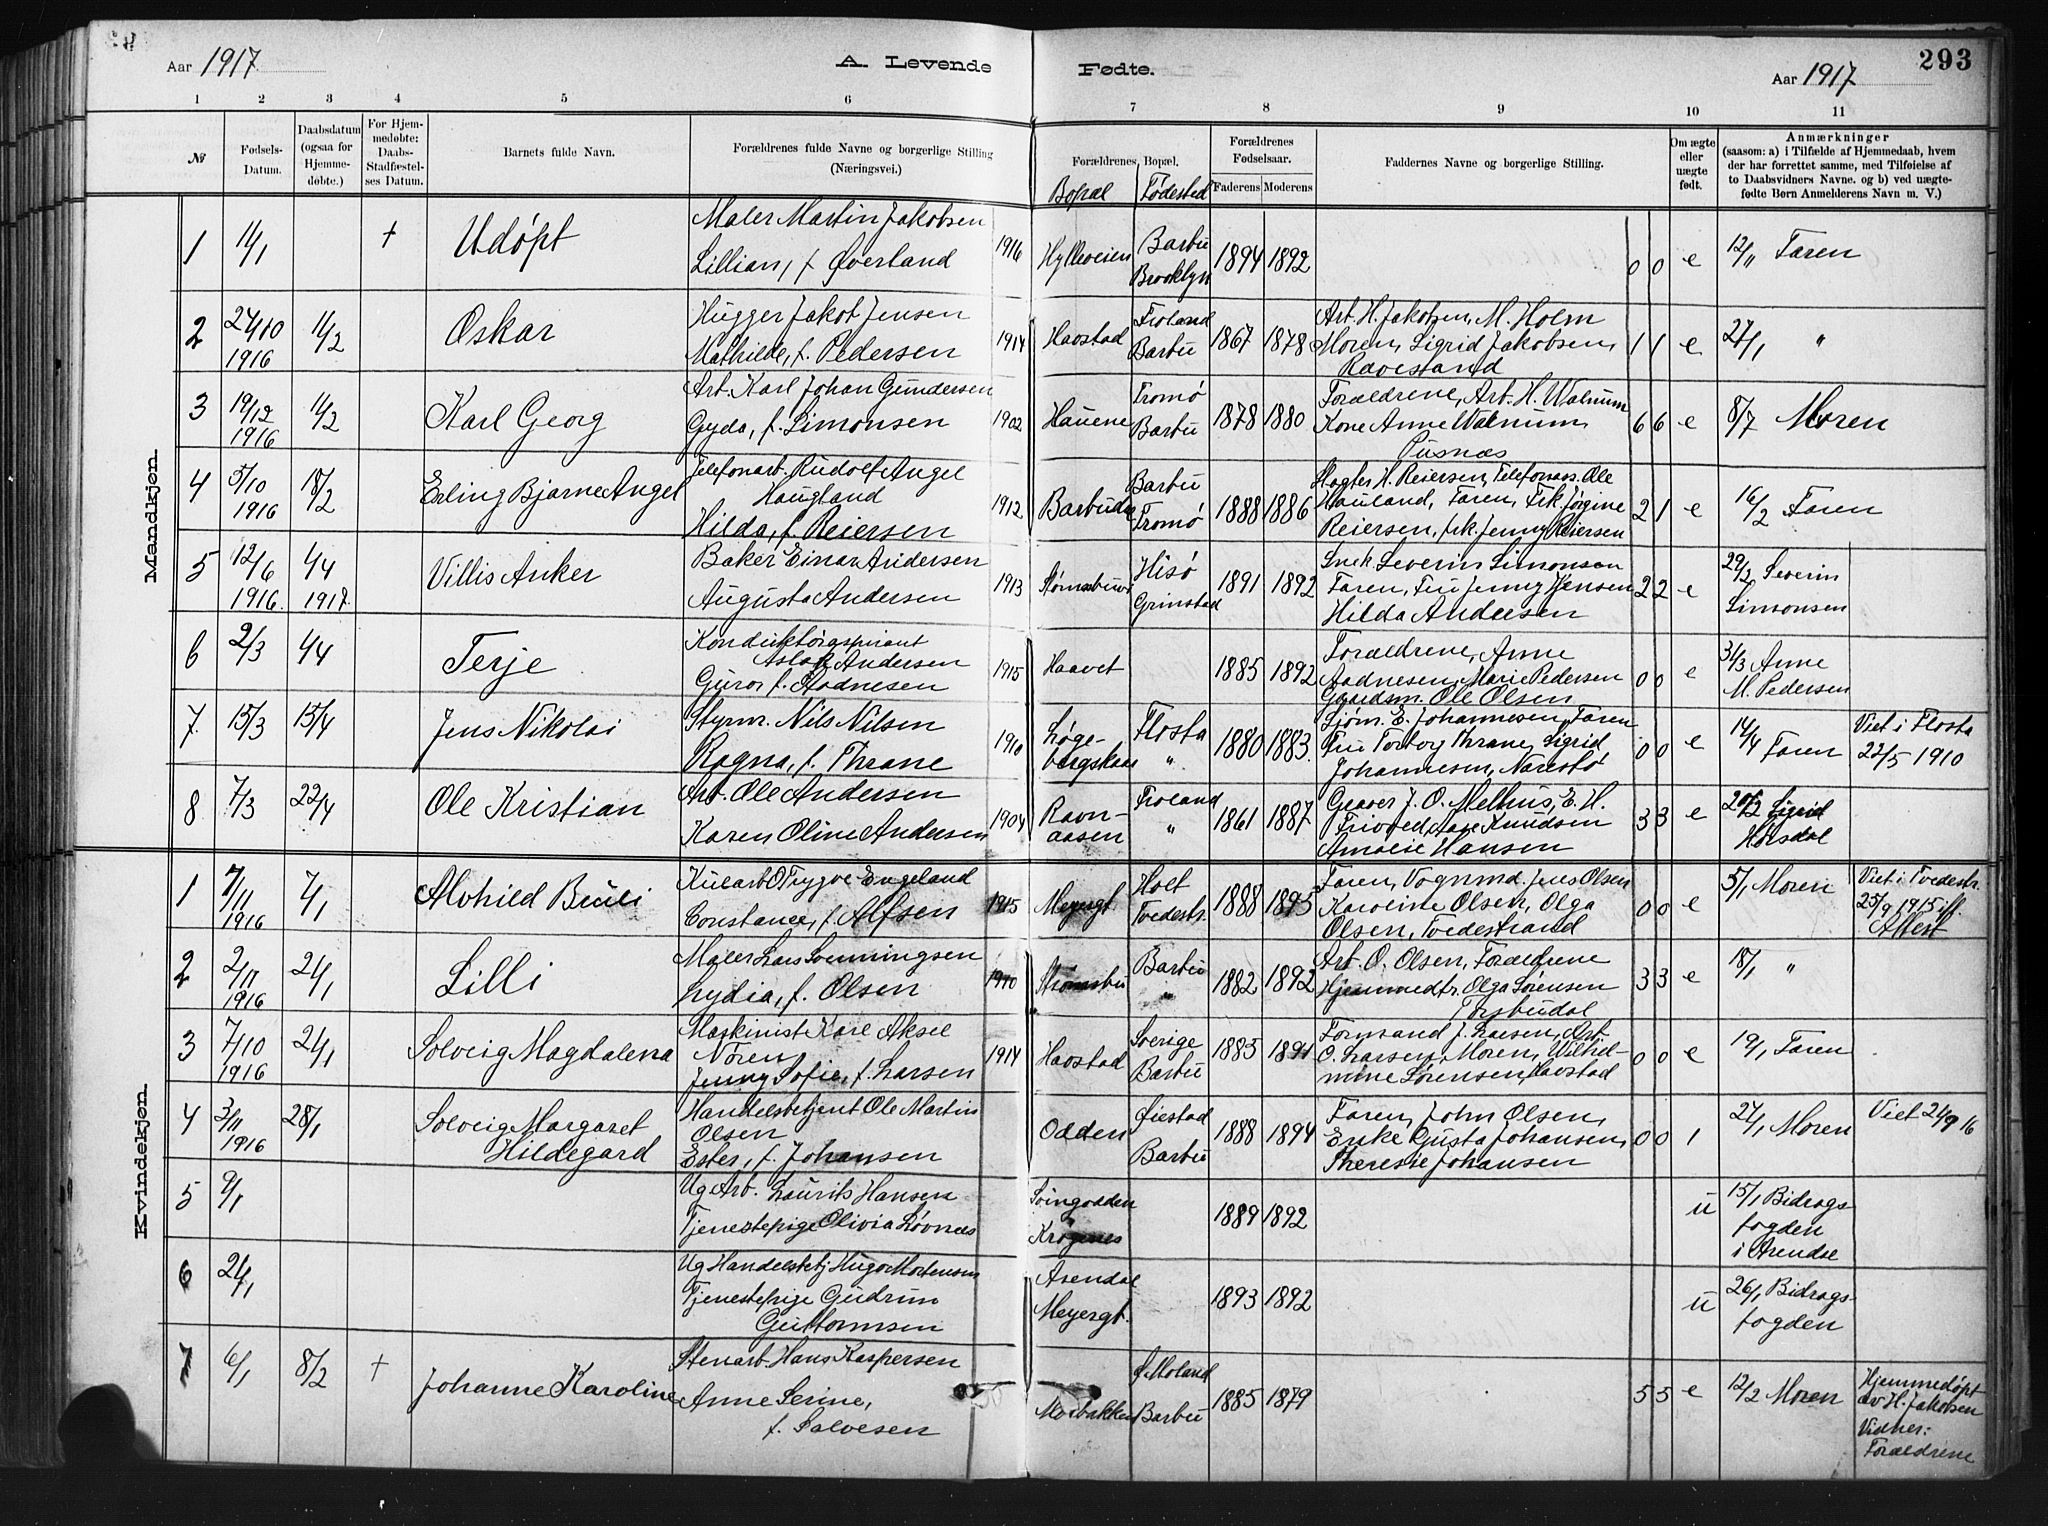 Aar 1917
A. Levende Fødte.
Aar 1917
293
1 2 3 4 5 6 7 8 9 10 11
№
Fødsels-
Datum.
Daabsdatum
(ogsaa for
Hjemme-
døbte.)
For Hjem-
medøbte:
Daabs-
Stadfæstel-
ses Datum.
Barnets fulde Navn.
Forældrenes fulde Navne og borgerlige Stilling
(Næringsvei.)
Forældrenes Bopæl.
Bopæl Fødested
Forældrenes
Fødselsaar.
Faderens Moderens
Faddernes Navne og borgerlige Stilling.
Om ægte
eller
uægte
født.
Anmærkninger
(saasom: a) i Tilfælde af Hjemmedaab, hvem
der har forrettet samme, med Tilføielse af
to Daabsvidners Navne. og b) ved uægte-
fødte Børn Anmelderens Navn m. V.)
Mandkjøn.
1 11/1 + Udøpt
Maler Martin Jakobsen
Lillian, f. Øverland
1916 Hylleveien
Barbu
Brooklyn
1894 1892 0 0 e
12/11 Faren
2 24/10
1916
11/2 Oskar
Hugger Jakob Jensen
Mathilde, f. Pedersen
1914 Havstad
Froland
Barbu
1867 1878
Arb. H. Jakobsen, M. Holm
Moren, Sigrid Jakobsen,
Ravestand
1 1 e 27/1 "
3 19/12
1916
11/2 Karl Georg
Arb. Karl Johan Gundersen
Gyda, f. Simonsen
1902 Hauene
Tromø
Barbu
1878 1880
Forældrene, Arb. H. Walnum
Kone Anne Walnum,
Pusnæs
6 6 e 8/7 Moren
4 5/10
1916
18/2 Erling Bjarne Angel
Telefonarb. Rudolf Angel
Haugland
Hilda, f. Reiersen
1912 Barbudal
Barbu
Tromø
1888 1886
Hagtes H. Reiersen, Telefonas. Ole
Hauland, Faren, Frk Jørgine
Reiersen, frk. Jenny Reiersen
2 1 e 16/2 Faren
5 12/6
1916
4/4
1917.
Villis Anker
Baker Einar Andersen
Augusta Andersen
1913 Strømsbuvei
Hisø
Grimstad
1891 1892
Snek. Severin Simonsen
Faren, Fru Jenny Hansen
Hilda Andersen
2 2 e 29/3 Severin
Simonsen
6 2/3 4/4 Terje
Konduktøraspirant
Aslak Andersen
Guro, f. Aadnesen
1915 Haavet
1885 1892
Forældrene, Anne
Aadnesen, Marie Pedersen
Gaardsm. Ole Olsen
0 0 e 31/3 Anne
M. Pedersen
7 15/3 15/4 Jens Nikolai
Styrm. Nils Nilsen
Ragna, f. Thrane
1910 Løge-
bergskaas
Flosta
"
1880 1883.
Sjøm. E. Johannesen, Faren
Fru Torborg Thrane, Sigrid
Johannesen, Narestø
0 0 e 14/4 Faren
Viet i Flosta
22/5 1910
8 7/3 22/4 Ole Kristian
Arb. Ole Andersen
Karen Oline Andersen
1904 Ravn-
aasen
Froland
"
1861 1887
Graver J. O. Melhus, E. H.
Trivoed, Aase Knudsen
Amalie Hansen
3 3 e 20/2 Sigrid
Hørsdal
Kvindekjøn.
1 7/11
1916
7/1 Alvhild Bruli
Kularb O Trygve Engeland
Constance, f. Alfsen
1915 Meyergt
Holt
Tvedestr.
1888 1895
Faren, Vognmd. Jens Olsen
Karoline Olsen, Olga
Olsen, Tvedestrand
0 0 e 5/1 Moren
Viet i Tvedestr.
25/9 1915 iflg.
Attest
2 2/11
1916
21/1 Lilli
Maler Lars Svenningsen
Lydia, f. Olsen
1910 Strømsbu
Barbu
"
1882 1892
Arb. O. Olsen, Forældrene
Hjemmedtr. Olga Sørensen
Torsbudal
3 3 e 18/1 "
3 7/10
1916
21/1 Solveig Magdalena
Maskinist Karl Aksel
Noren
Jenny Sofie, f. Larsen
1914 Havstad
Sverige
Barbu
1885 1891
Formand J. Larsen, Arb.
O. Larsen, Moren, Wilhel-
mine Sørensen, Havstad
0 0 e 19/1 Faren
4 3/11
1916
28/1 Solveig Margaret
Hildegard
Handelsbetjent Ole Martin
Olsen
Ester, f. Johansen
Odden
Øiestad
Barbu
1888 1894
Faren, John Olsen,
Enke Gusta Johansen,
Theresie Johansen
0 0 1 24/1 Moren
Viet 24/9 16
5 9/1
Ug Arb. Laurits Hansen
Tjenestepige Olivia Løvnæs
Svingodden
Krøgenes
1889 1892 u
15/1 Bidrags-
fogden
i Arendal
6 21/1
Ug Handelsbetj Hugo Mortensen
Tjenestepige Gudrun
Guttormsen
Arendal
Meyergt.
1893 1892 u
26/1 Bidrags-
fogden
7 6/1 8/2 + Johanne Karoline
Stenarb. Hans Kaspersen
Anne Serine,
f. Salvesen
Morbakken
Ø. Moland
Barbu
1885 1879 5 5 e
12/2 Moren
Hjemmedøpt
av H. Jakobsen
Vidner:
Forældrene